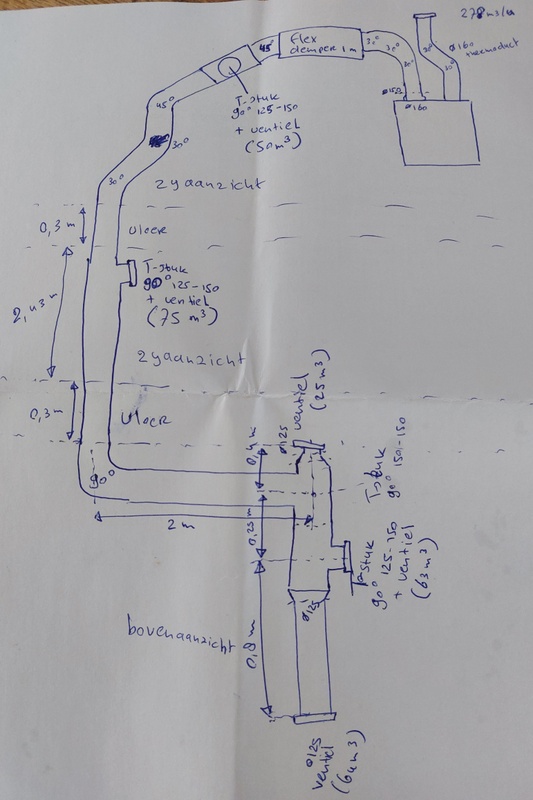 278 m3/u
flex
demper 1 m
45°
30°
30°
30°
30°
30°
ø160
thermoduct
ø150
ø160
T-stuk
90° 125-150
+ ventiel
(50 m³)
45°
30°
30°
zyaanzicht
0,3 m
vloer
T-stuk
90° 125-150
+ ventiel
(75 m³)
2,43 m
zyaanzicht
0,3 m
vloer
ø125
ventiel
(25 m³)
0,4 m
90°
T-stuk
90° 150-150
2 m
0,25 m
T-stuk
90° 125-150
+ ventiel
(63 m³)
ø125
bovenaanzicht
0,8 m
ø125
ventiel
(64 m³)